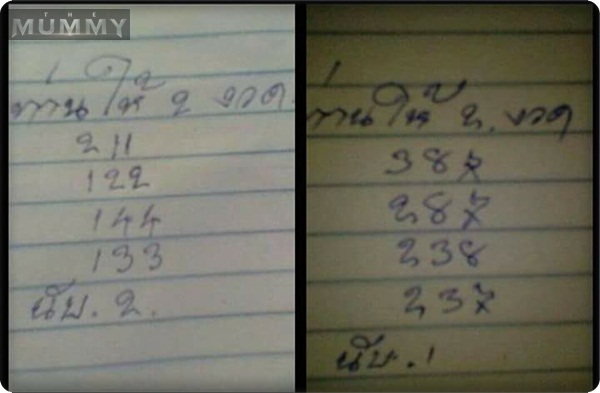 THE
MUMMY
ท่านให้ 2 งวด
211
122
144
133
นับ. 2.
ท่านให้ 2. งวด
387
287
238
237
นับ. 1